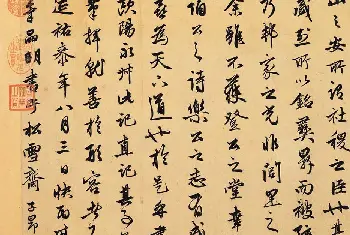 之安所謂社稷之臣
盛烈所以銘彝鼎而被
乃邦家之光非閭里
余雖不獲登公之堂幸
公之詩樂公之志有成
喜為天下道也於是
歐陽永叔此記真記其
揮能善於形容者
延祐柒年八月三日快
品明書于松雪齋 子昂